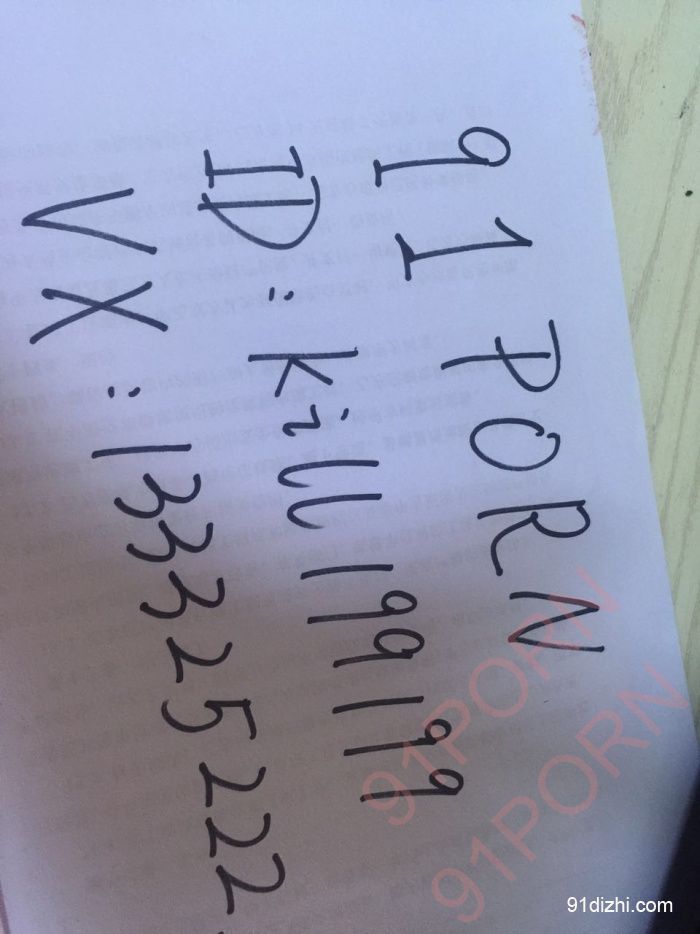 91 PORN
ID: kill199199
VX:133325222
91PORN
91PORN
91dizhi.com